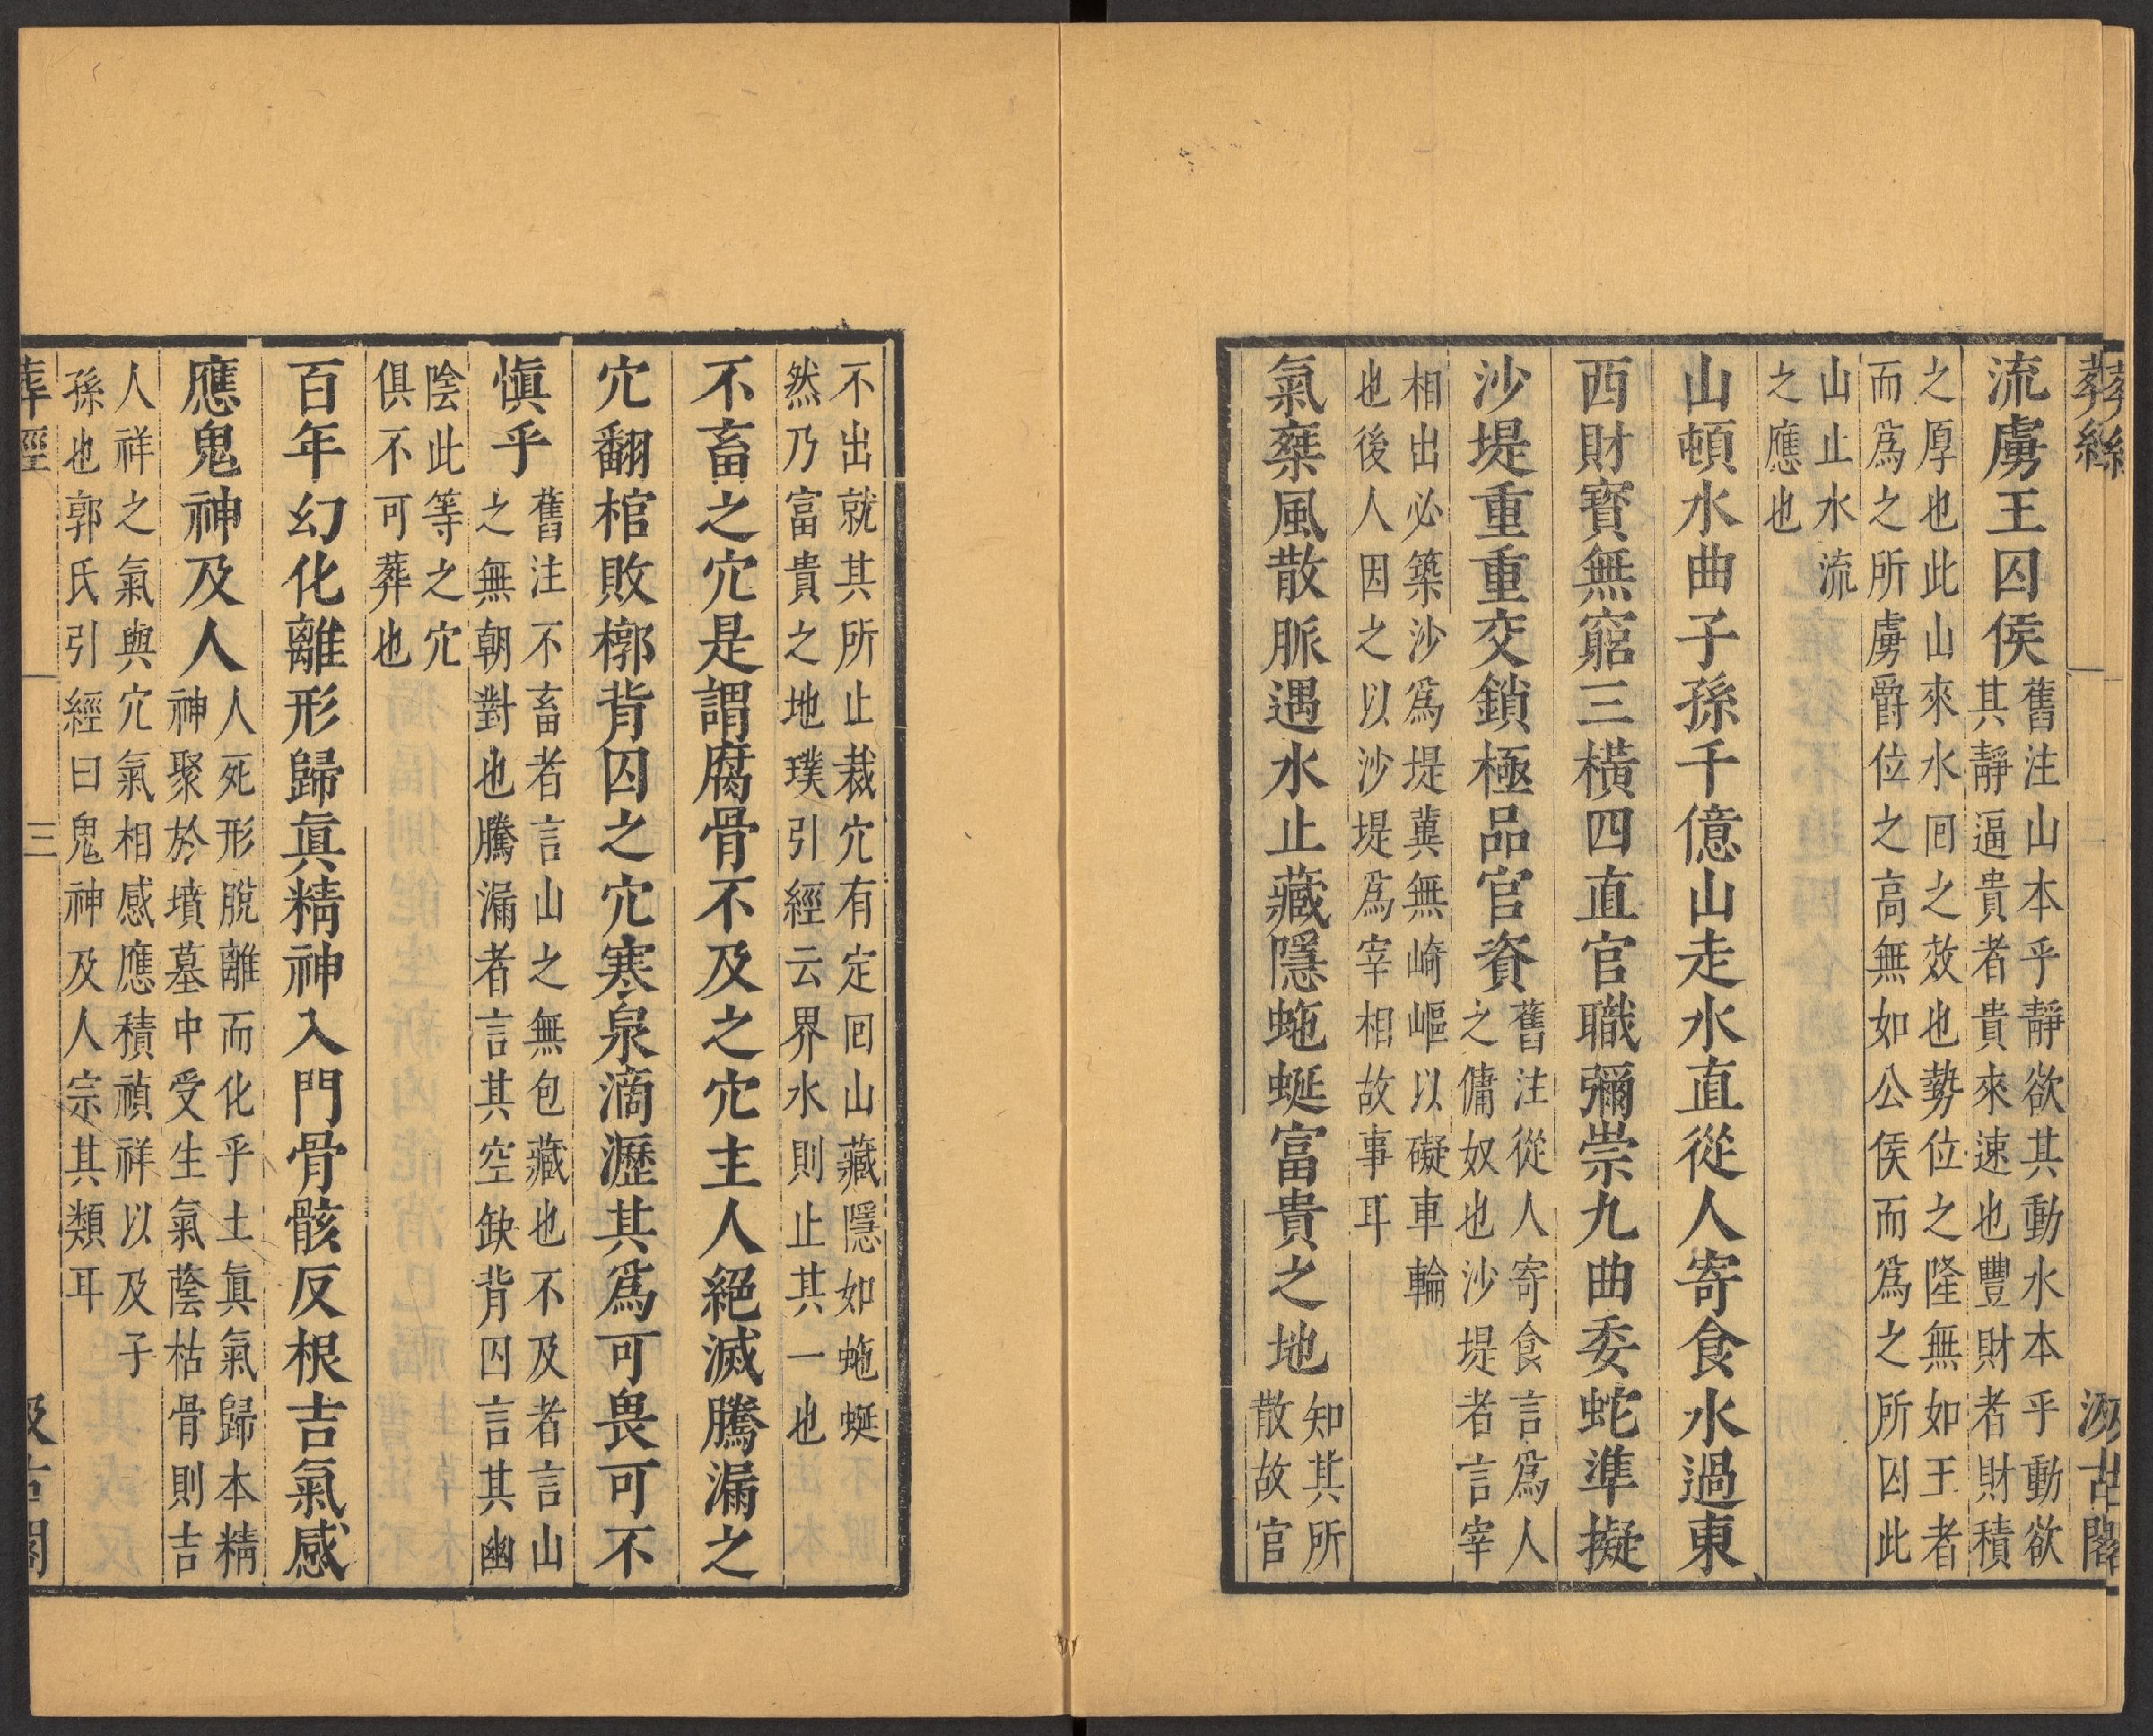 葬經
汲古閣
流虜王囚侯舊注山本乎靜欲其動水本乎動欲
其靜逼貴者貴來速也豐財者財積
之厚也此山來水囘之效也勢位之隆無如王者
而爲之所虜爵位之高無如公侯而爲之所囚此
山止水流
之應也
山頓水曲子孫千億山走水直從人寄食水過東
西財寳無窮三橫四直官職彌崇九曲委蛇準擬
沙堤重重交鎖極品官資舊注從人寄食言爲人
之傭奴也沙堤者言宰
相出必築沙爲堤冀無崎嶇以礙車輪
也後人因之以沙堤爲宰相故事耳
氣乗風散脈遇水止藏隱蜿蜒富貴之地知其所
散故官
不出就其所止裁穴有定囘山藏隱如蜿蜒
然乃富貴之地璞引經云界水則止其一也
不畜之穴是謂腐骨不及之穴主人絕滅騰漏之
穴翻棺敗槨背囚之穴寒泉滴瀝其爲可畏可不
愼乎舊注不畜者言山之無包藏也不及者言山
之無朝對也騰漏者言其空缺背囚言其幽
陰此等之穴
俱不可葬也
百年幻化離形歸眞精神入門骨骸反根吉氣感
應鬼神及人人死形脫離而化乎土眞氣歸本精
神聚於墳墓中受生氣蔭枯骨則吉
人祥之氣與穴氣相感應積禎祥以及子
孫也郭氏引經曰鬼神及人宗其類耳
葬經
三
汲古閣